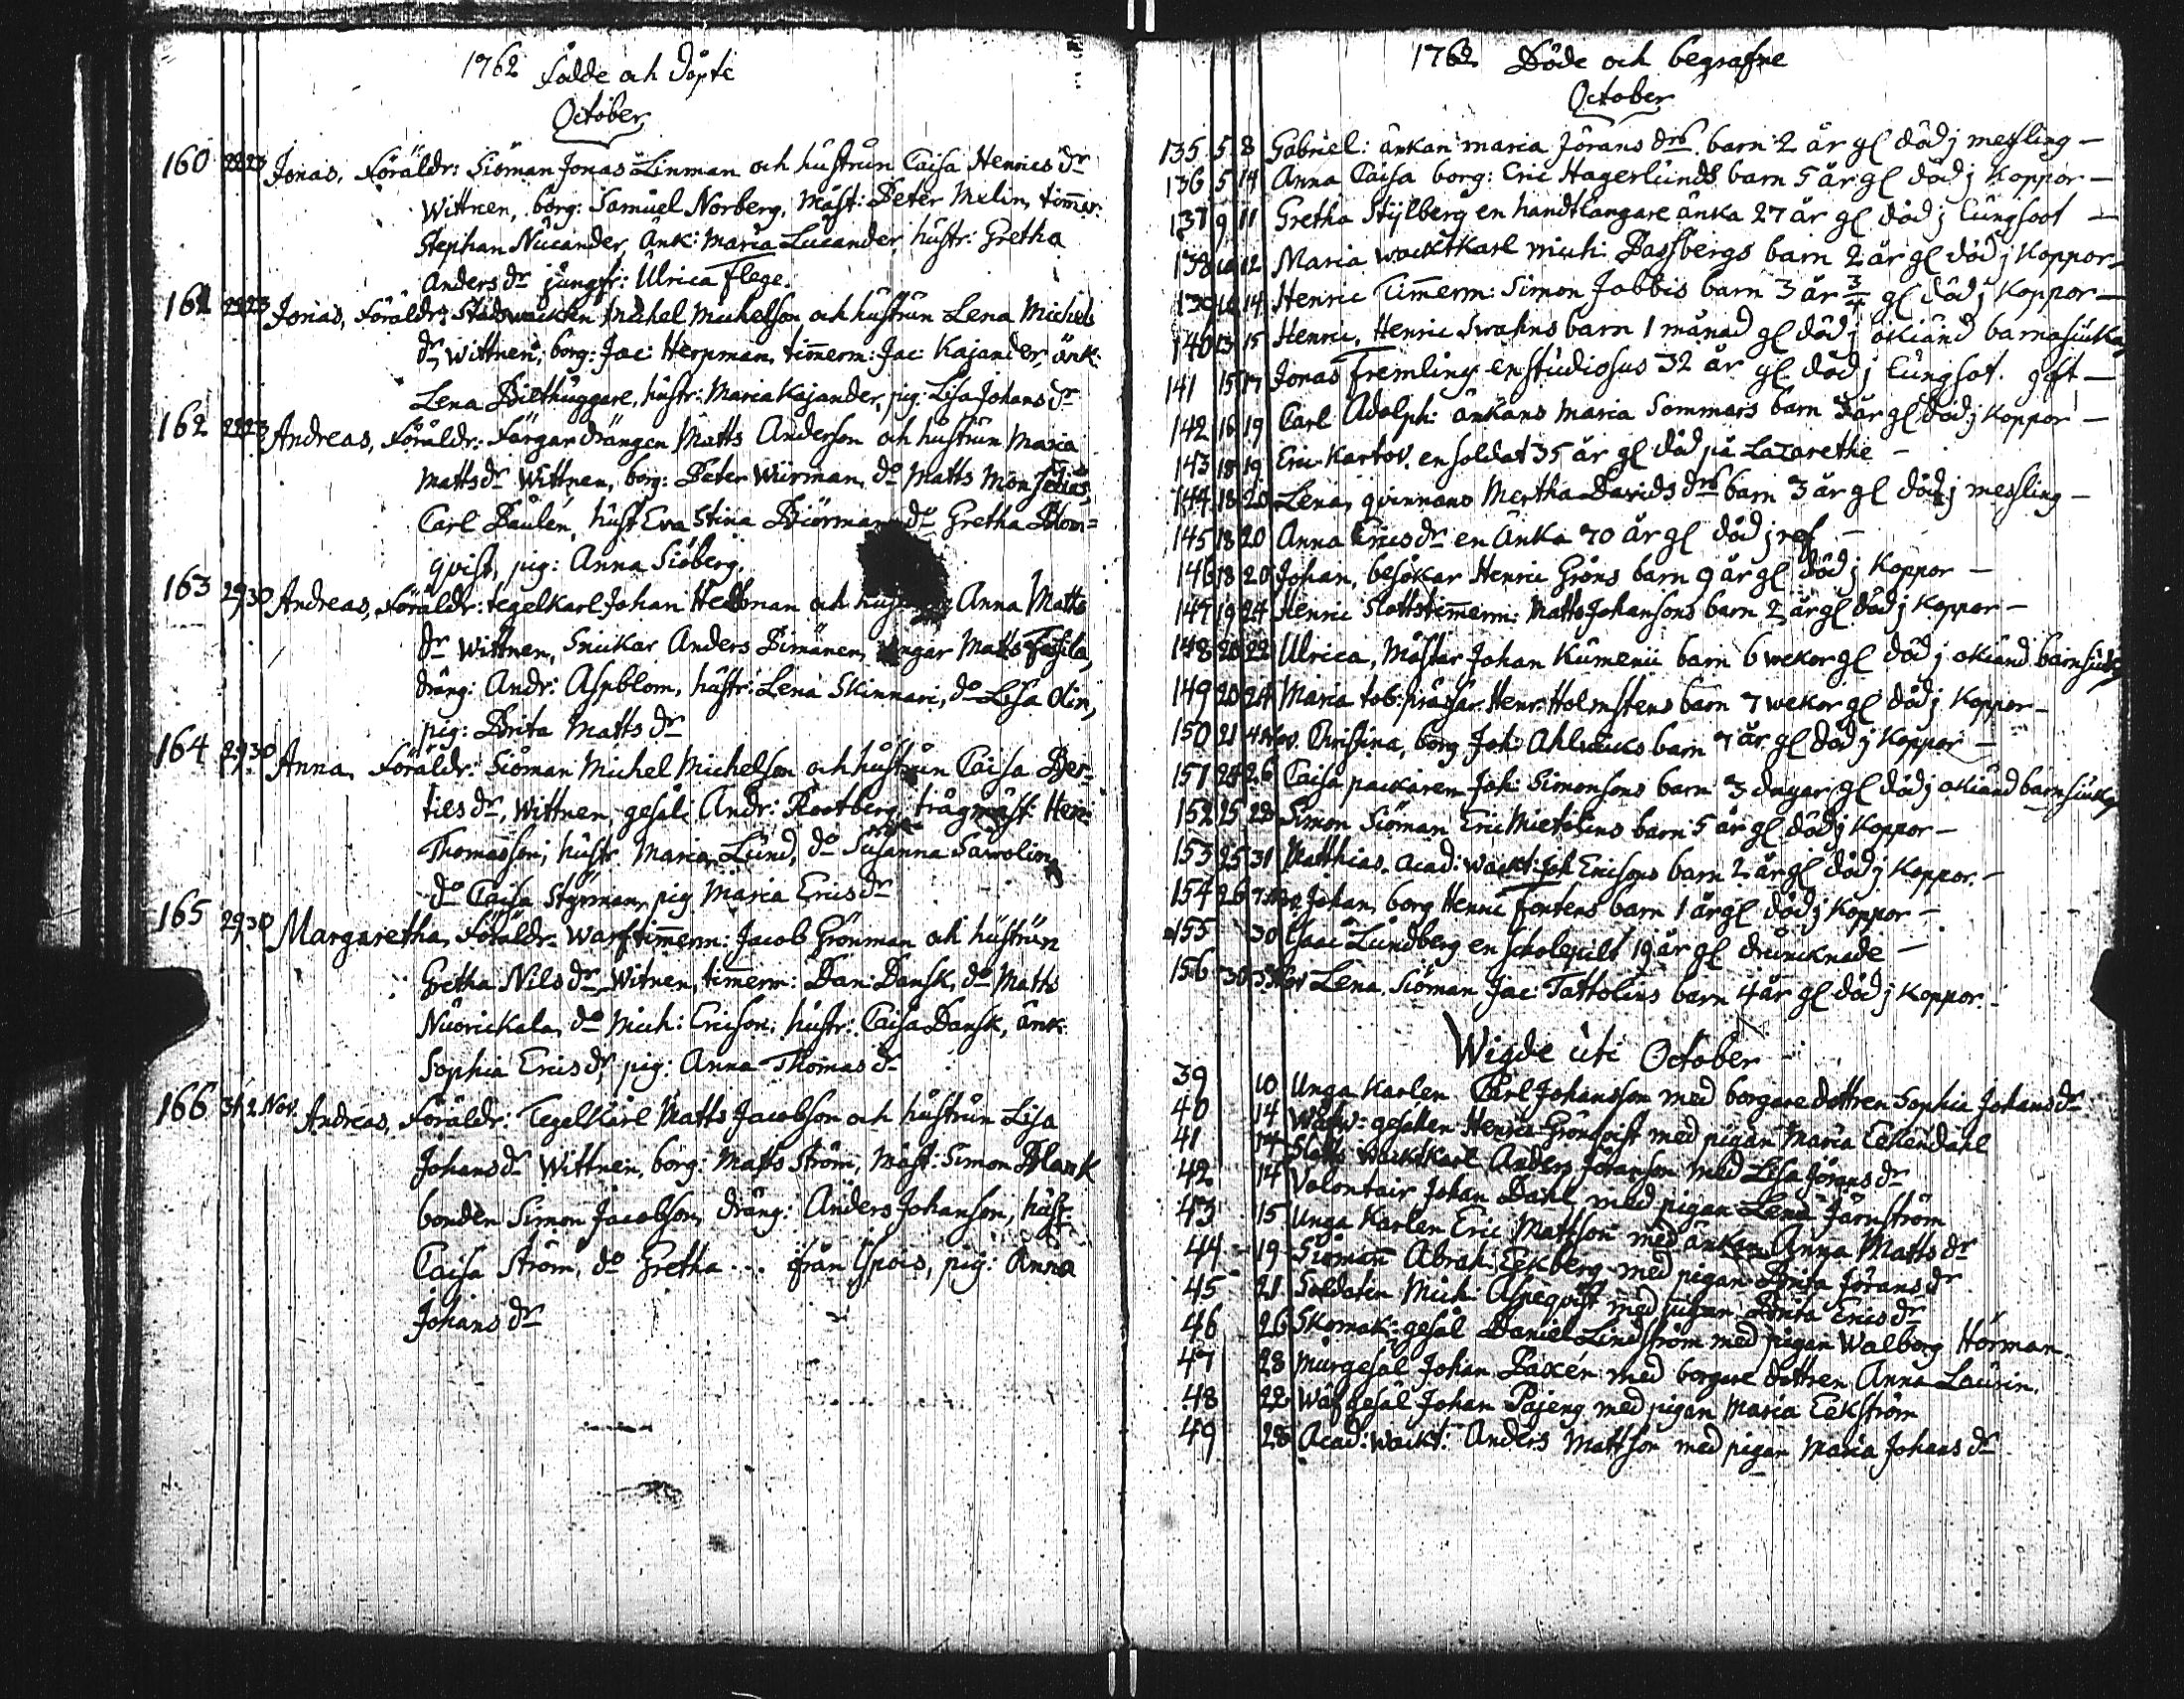 1762 Födde och döpte
October
160 22 23 Jonas, Föräldr: Siöman Jonas Linman och hustrun Caisa Henrics dr
Wittnen, borg: Samuel Norberg, Mäst: Peter Melin, timmer:
Stephan Nucander, Änk: Maria Lucander, hustr: Gretha
Anders dr jungfr: Ulrica Flege.
161 22 23 Jonas, Föräldr: Stadswackten Michel Michelson och hustrun Lena Michels
dr, Wittnen, borg: Jac: Herpman, timmerm: Jac: Kajander, änk:
Lena Bilthuggare, hustr: Maria Kajander, pig: Lisa Johans dr
162 22 23 Andreas, Föräldr: Färgar drängen Matts Anderson och hustrun Maria
Matts dr Wittnen, borg: Peter Wiirman, do Matts Monselius,
Carl Paulen, hust Eva Stina Biörman do Gretha Blom=
qvist, pig: Anna Siöberg.
163 29 30 Andreas, Föräldr: tegelkarl Johan Hedman och Anna Matts
dr Wittnen, Snickar Anders Pimänen, Matts
dräng: Andr: Aspblom, hustr: Lena Skinnari, do Lisa Olin,
pig: Brita Matts dr
164 29 30 Anna, Föräldr: Siöman Michel Michelson och hustrun Caisa Ber=
tils dr, Wittnen, gesäl: Andr: Rootberg, trägmäst: Henr:
Thomasson, hustr: Maria Lund, do Susanna Sawolin,
do Caisa Styrman, pig Maria Erics dr
165 29 30 Margaretha, Föräldr: Warftimerm: Jacob Grönman och hustrun
Gretha Nils dr, Witnen, timerm: Dan: Dansk, do Matts
Nuorickala, do Mich: Ericson, hustr: Caisa Dansk, änk:
Sophia Erics dr, pig: Anna Thomas dr
166 31 2 Nov. Andreas, Föräldr: Tegelkarl Matts Jacobson och hustrun Lisa
Johans dr Wittnen, borg: Matts Ström, Mäst: Simon Blank
bonden Simon Jacobson, dräng: Anders Johanson, hust:
Caisa Ström, do Gretha ... från Ispois, pig: Anna
Johans dr
1762 Döde och begrafne
October
135 5 8 Gabriel: änkan maria Jörans drs barn 2 år gl död j messling –
136 5 14 Anna Caisa borg: Eric Hagerlunds barn 5 år gl död j Koppor –
137 9 11 Gretha Stylberg en handtlangare änka 27 år gl död j lungsoot –
138 10 12 Maria wacktkarl mich: Passbergs barn 2 år gl död j Koppor –
139 10 14 Henric Timmerm: Simon Jobbis barn 3 år 3/4 gl död j Koppor –
140 13 15 Henric, Henric Swahns barn 1 månad gl död j okiänd barnasiuka,
141 15 17 Jonas Fremling en studiosus 32 år gl död j lungsot. gift –
142 16 19 Carl Adolph: änkans maria Sommars barn 3 år gl död j Koppor –
143 18 19 Eric Kartov. en soldat 35 år gl död på Lazarethe –
144 18 20 Lena, qvinnans Mertha Davids drs barn 3 år gl död j messling –
145 18 20 Anna Erics dr en änka 70 år gl död j ref –
146 18 20 Johan, besökar Henric Gröns barn 9 år gl död j Koppor –
147 19 24 Henric Slottstimerm: Matts Johansons barn 2 år gl död j Koppor –
148 20 22 Ulrica, Mästar Johan Kumenii barn 6 wekor gl död j okiänd barnsiuka
149 20 24 Maria tob: prässar Henr: Holmstens barn 7 wekor gl död j Koppor –
150 21 4 Nov. Christina, borg Joh: barn 7 år gl död j Koppor –
151 24 26 Caisa packaren Joh: Simonsons barn 3 dagar gl död j okiänd barnsiuka
152 25 28 Simon Siöman Eric Mietolins barn 5 år gl död j Koppor –
153 25 31 Matthias. Acad: wackt: Joh Ericsons barn 2 år gl död j Koppor. –
154 26 7 Nov. Johan, borg Henric Fontens barn 1 år gl död j Koppor –
155 30 Isaac Lundberg en scholepilt 19 år gl drunknade –
156 30 3 Nov Lena. Siöman Jac: Tattolins barn 4 år gl död j Koppor. –
Wigde uti October
39 10 Unga Karlen Carl Johansson med borgare dottren Sophia Johans dr
40 14 Wäfw: gesällen Henric Grönqvist med pigan Maria Eekendahl
41 14 Slotts wacktkarl Anders Jöranson med Lisa Jörans dr
42 14 Volontair Johan Dahl med pigan Lena Järnström
43 15 Unga Karlen Eric Mattson med änkan Anna Matts dr
44 19 Siöman Abrah: Eekberg med pigan Brita Jörans dr
45 21 Soldaten Mich: Aspeqvist med pigan Brita Erics dr
46 26 Skomak: gesäl Daniel Lindström med pigan Walborg Hörman.
47 28 Murgesäl Johan Paxen med borgare dottren Anna Laurin.
48 22 Wäfgesäl Johan Pajeng med pigan Maria Eekström
49 28 Acad: wackt: Anders Mattson med pigan Maria Johans dr